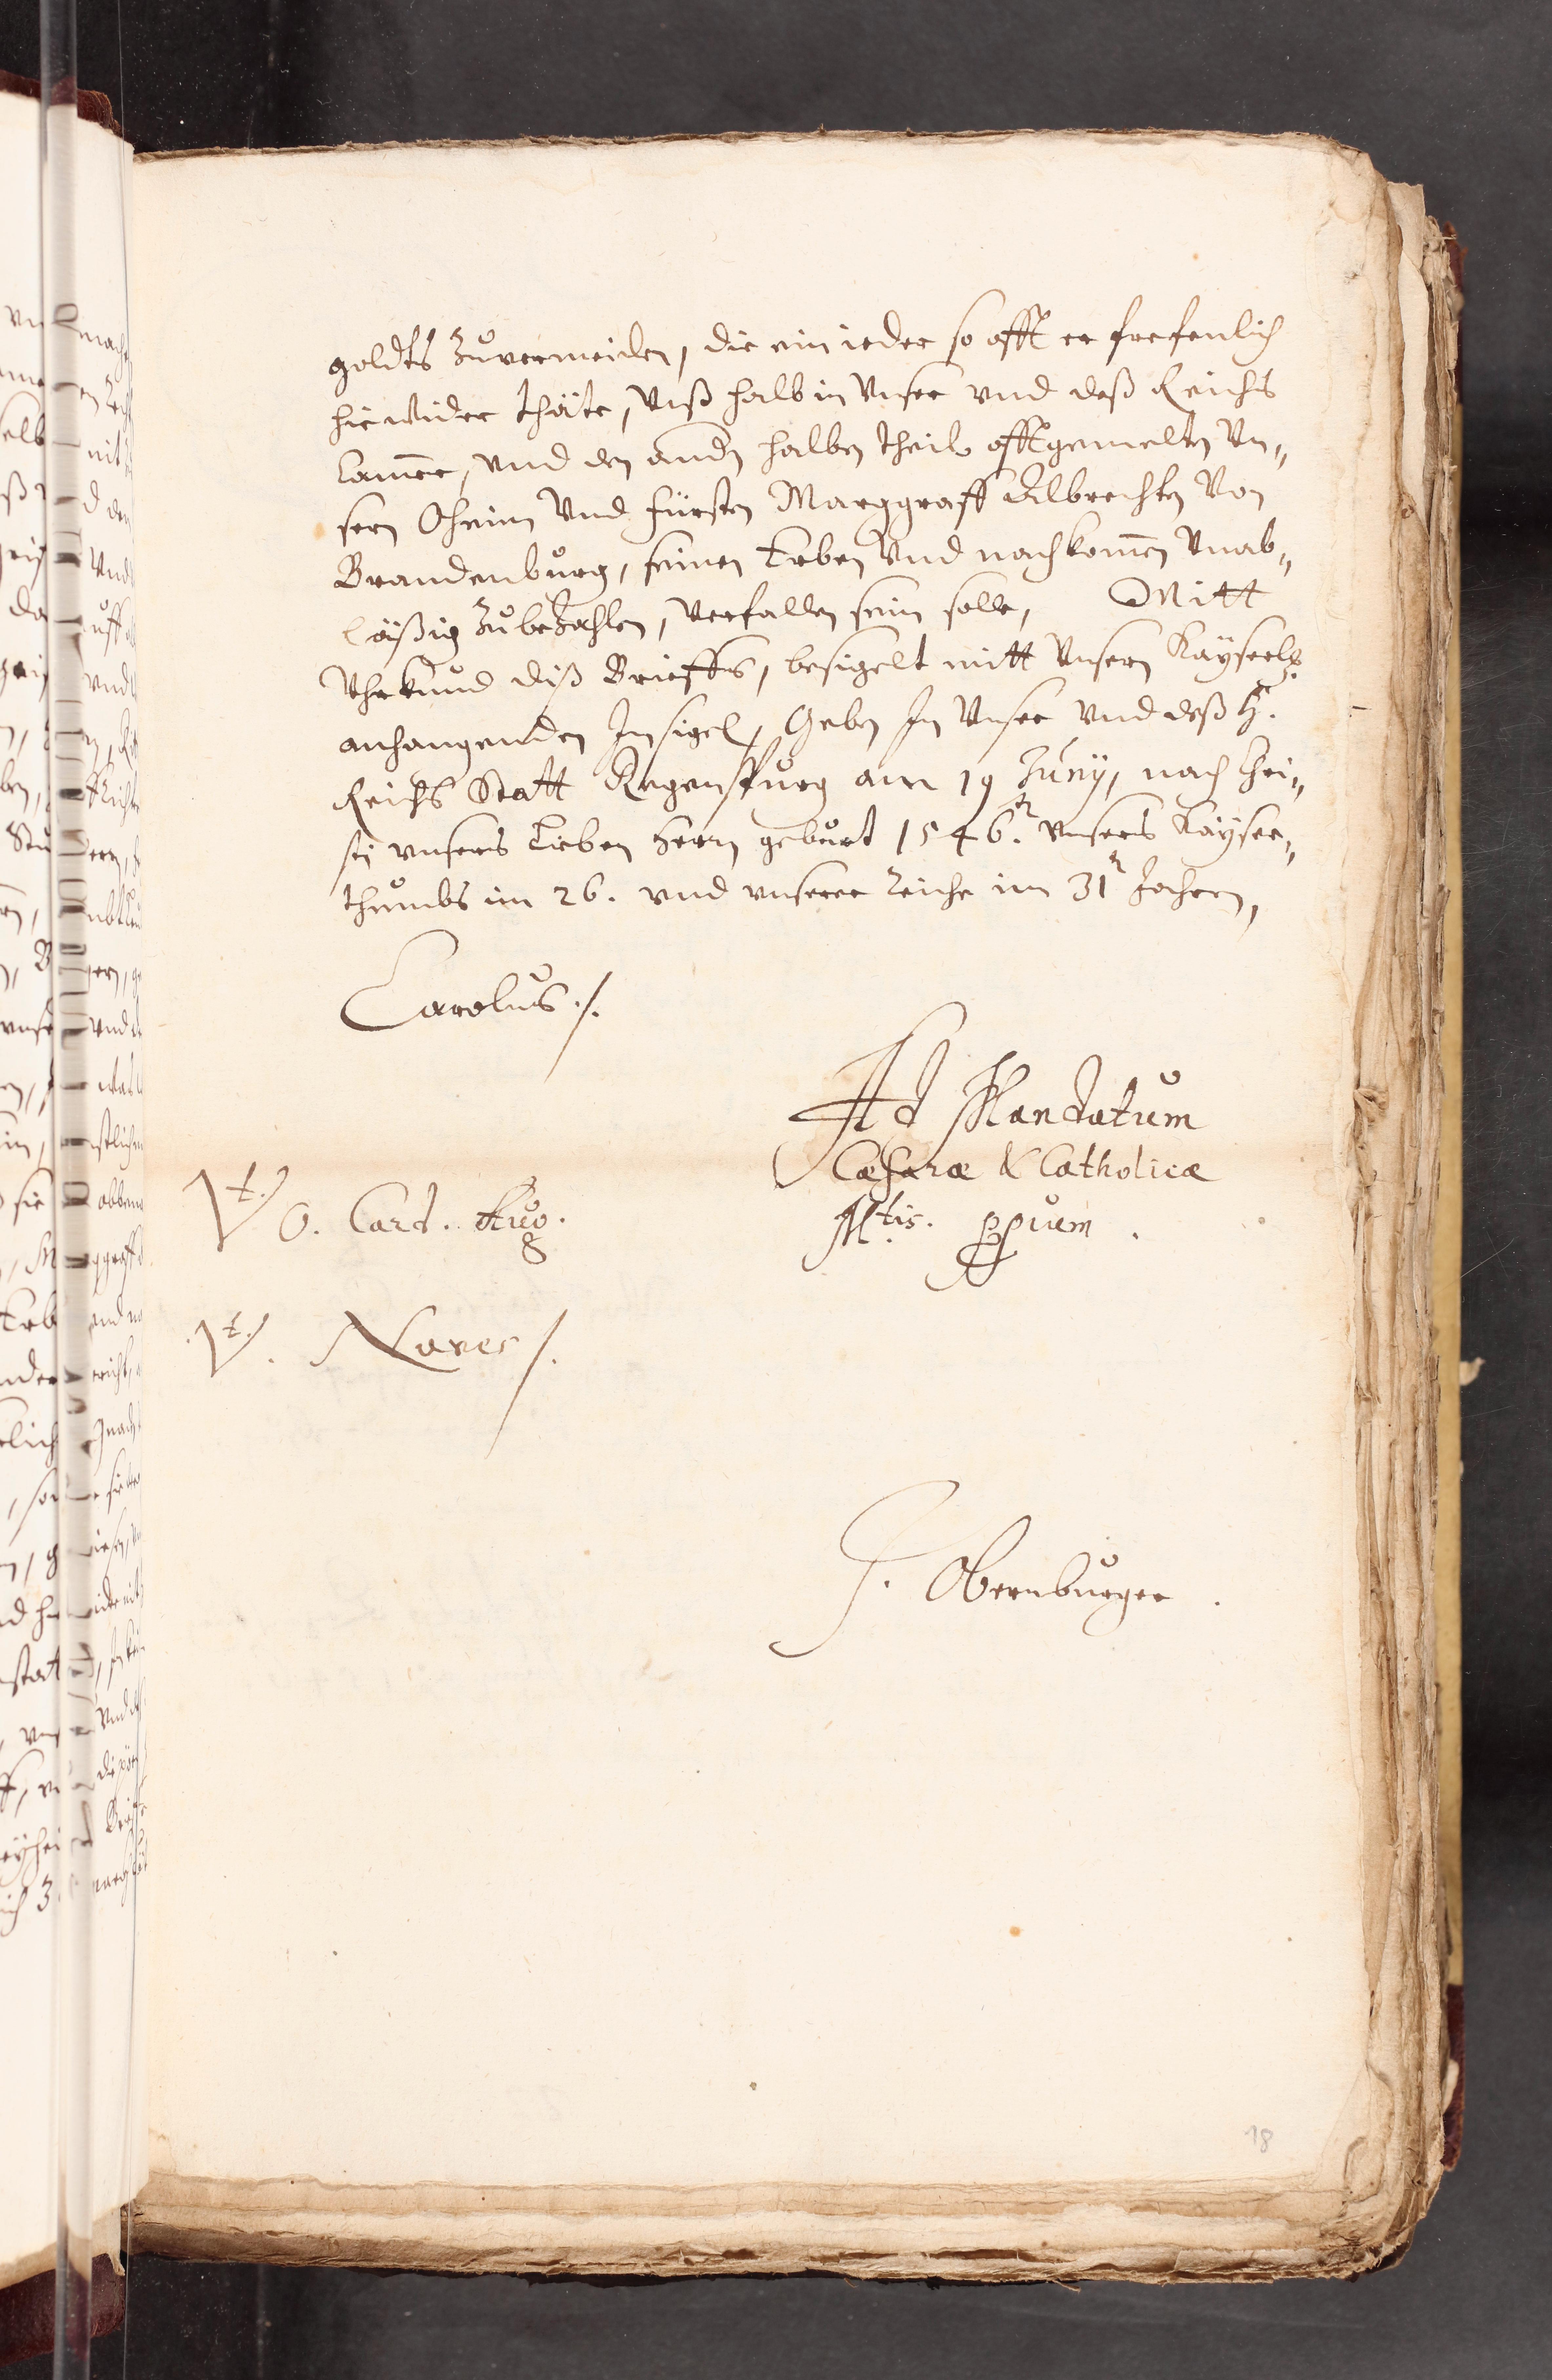 goldts Zuvermeiden, die ein ieder so offt er frefenlich
hiewider thäte, Unß halb in Unser und deß Reichs
Camer, und den andn halben theil offtgemelten Un„
sern Oheim Und fürsten Marggraff Albrechten Von
Brandenburg, seinen Erben Und nachkomen Unab„
läßig Zubezahlen, Verfallen sein solle, Mitt
Uhrkund diß Brieffs, besigelt mitt Unsern Kayserlh
anhangenden Insigel, Geben In Unser und deß H.
Reichs Statt Regenspurg am 19 Juny, nach Chri„
sti unsers Lieben Herrn geburt 1546. unsers Kayser„
thumbs im 26. und unserer Reiche im 31 Jahren,
Carolus ./.
Ad Mandatum
Cæsaræ & Catholicæ
Vt.
O. Card. Aug.
Mtis. ppium.
Vt. Naves /.
J. Obernburger.
18